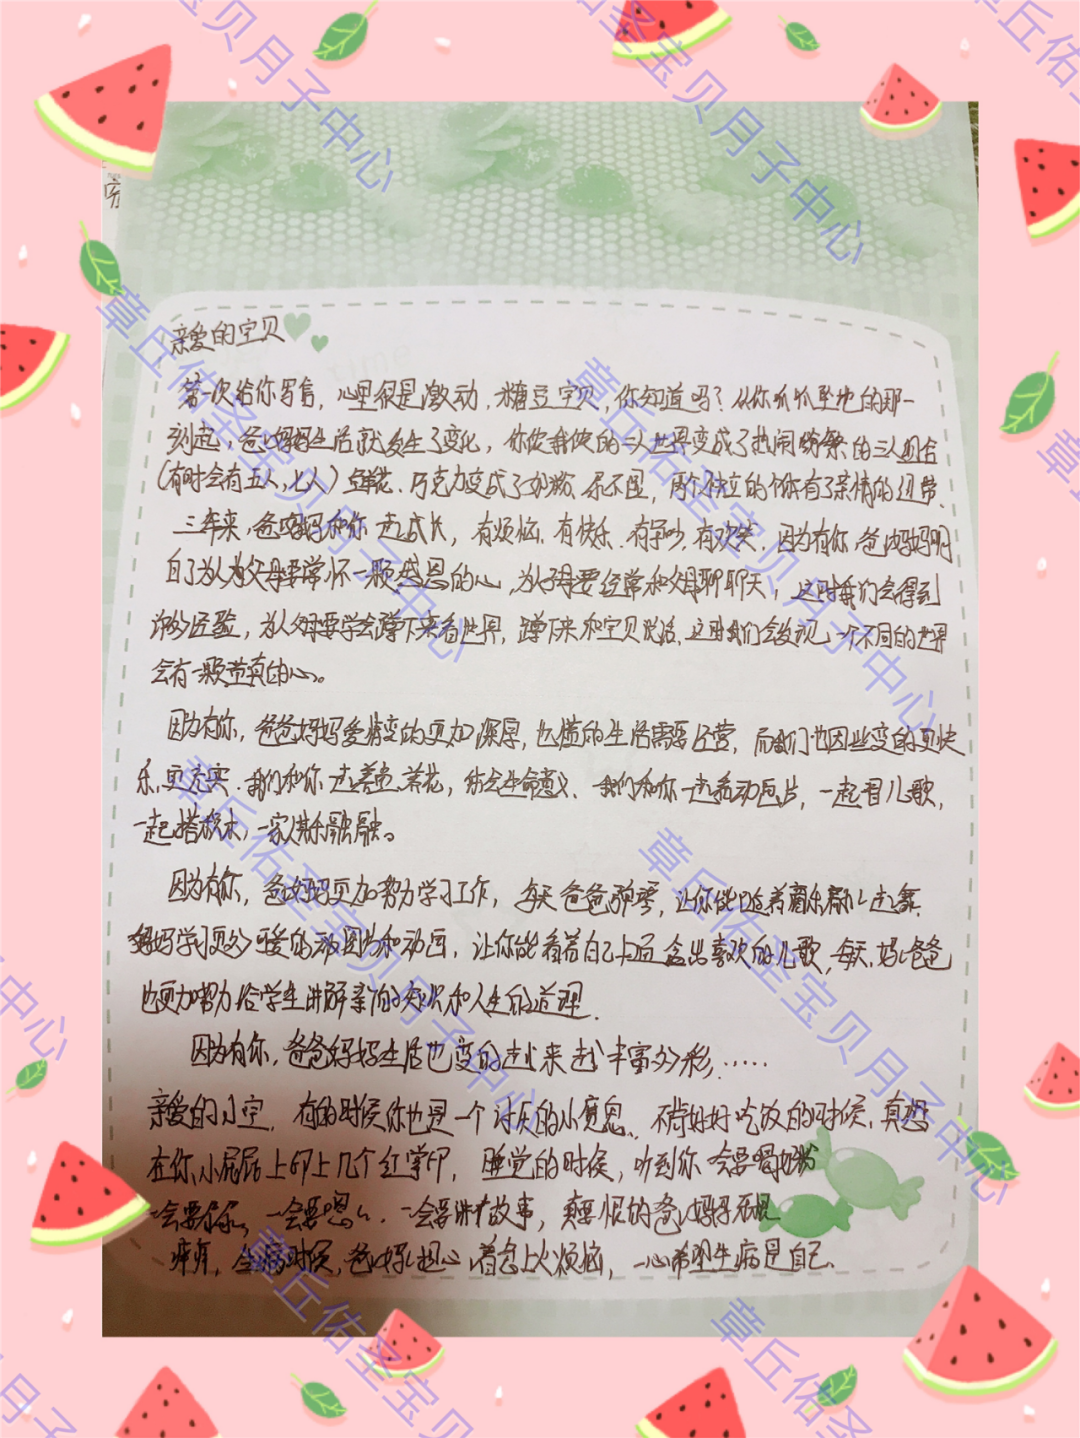 亲爱的宝贝
第一次给你写信，心里很是激动，糖豆宝贝，你知道吗？从你呱呱坠地的那一
刻起，爸妈妈生活就发生了变化，你使我俩的二人世界变成了热闹纷繁的三人组合
（有时会有五人，七人）鲜花、巧克力变成了奶粉、尿不湿，两个独立的个体有了亲情的纽带.
三年来，爸妈妈和你一起成长，有烦恼.有快乐.有争吵.有欢笑.因为有你，爸妈妈明
白了为人父母要常怀一颗感恩的心，为人子母要经常和父母聊聊天，这时我们会得到
许多经验，为人父母要学会蹲下来看世界，蹲下来和宝贝说话，这时我们会发现，一个不同的世界
会有一颗童真的心。
因为有你，爸爸妈妈爱情变的更加深厚，也懂的生活需要经营，而我们也因此变的更快
乐，更充实.我们和你一起养鱼，养花，体会生命意义、我们和你一起看动画片，一起唱儿歌，
一起搭积木，一家人其乐融融。
因为有你，爸妈妈更加努力学习工作，每天爸爸弹琴，让你能随着音乐翩翩起舞.
妈妈学习更多可爱的动图片和动画，让你能看着自己上面念出喜欢的儿歌，每天，妈爸爸
也更加努力给学生讲解新的知识和人生的道理.
因为有你，爸爸妈妈生活也变的越来越丰富多彩，……
亲爱的小宝，有的时候你也是一个讨厌的小魔鬼、不肯好好吃饭的时候，真想
在你小屁屁上印上几个红掌印，睡觉的时候，听到你一会要喝奶粉
一会要尿尿，一会要嗯嗯，一会要讲故事，真要恨的爸妈妈牙根
痒痒，生病时候，爸妈担心着急上火烦恼，一心希望生病是自己.
章丘佑圣宝贝月子中心
章丘佑圣宝贝月子中心
章丘佑圣宝贝月子中心
章丘佑圣宝贝月子中心
章丘佑圣宝贝月子中心
章丘佑圣宝贝月子中心
章丘佑圣宝贝月子中心